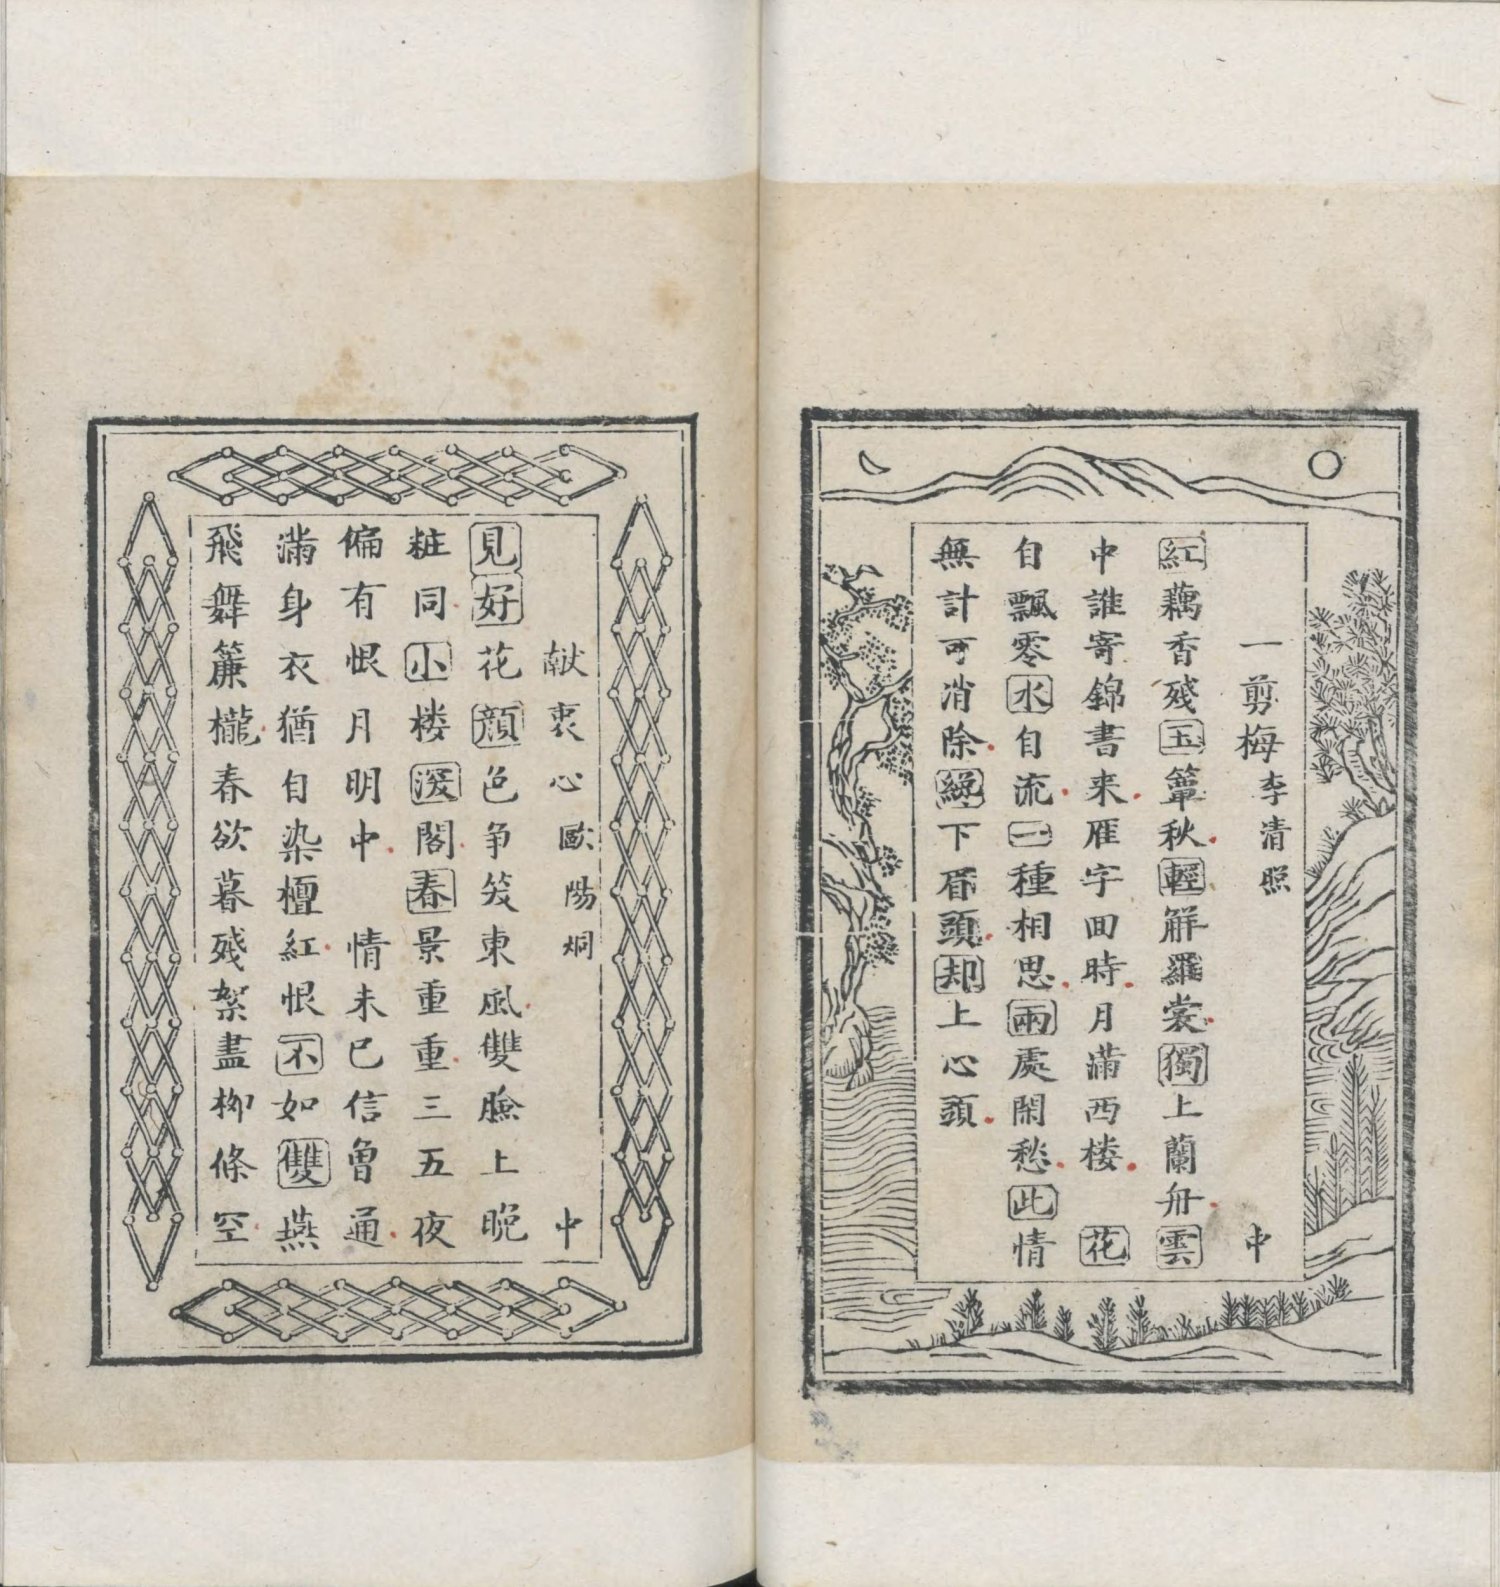 一剪梅 李清照 中
紅藕香殘玉簟秋輕觧羅裳獨上蘭舟雲
中誰寄錦書来雁字回時月滿西楼 花
自飄零水自流一種相思兩處閑愁此情
無計可消除纔下眉頭却上心頭
献衷心 歐陽炯 中
見好花顔色争笑東風雙臉上晚
粧同小楼深閣春景重重三五夜
偏有恨月明中 情未已信曾通
滿身衣猶自染檀紅恨不如雙燕
飛舞簾櫳春欲暮殘絮盡柳條空